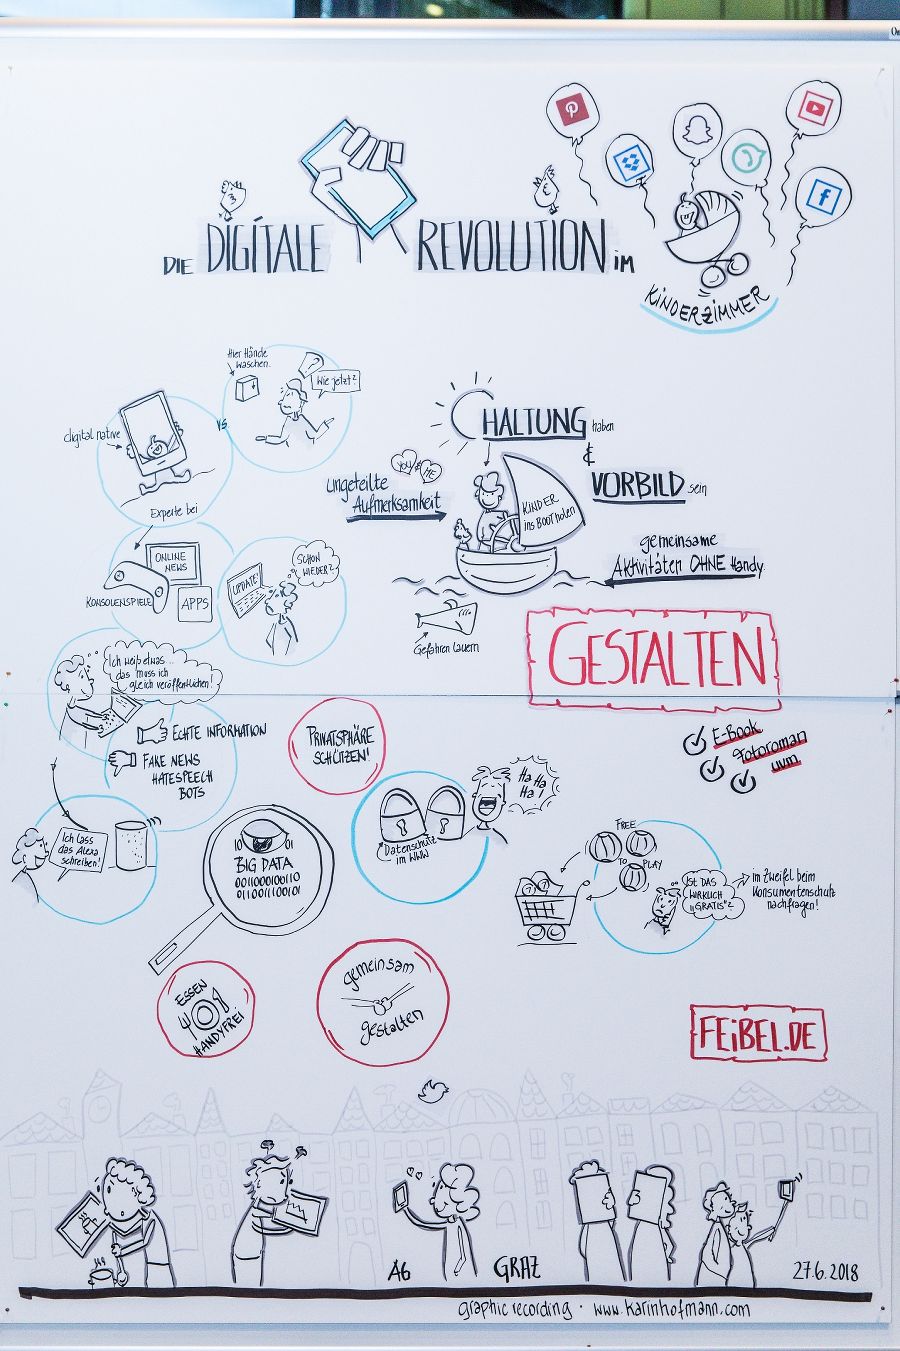 DIE DIGITALE REVOLUTION im
KINDERZIMMER
Hier Hände
waschen.
Wie jetzt?
digital native
VS
Experte bei
ONLINE
NEWS
KONSOLENSPIELE
APPS
UPDATE!
SCHON
WIEDER?
HALTUNG haben
&
VORBILD sein
YOU & ME
ungeteilte
Aufmerksamkeit
KINDER
ins BOOT holen
gemeinsame
Aktivitäten OHNE Handy
Gefahren lauern
GESTALTEN
Ich weiß etwas...
das muss ich
gleich veröffentlichen!
ECHTE INFORMATION
FAKE NEWS
HATESPEECH
BOTS
PRIVATSPHÄRE
SCHÜTZEN!
E-Book
Fotoroman
uvm
Ha Ha
Ha!
Datenschutz
im WWW
Ich lass
das Alexa
schreiben!
10 01
BIG DATA
0011000100110
0110011100101
FREE
TO PLAY
IST DAS
WIRKLICH
„GRATIS"?
im Zweifel beim
Konsumentenschutz
nachfragen!
ESSEN
HANDYFREI
gemeinsam
gestalten
FEiBEL.DE
A6
GRAZ
27.6.2018
graphic recording · www.karinhofmann.com